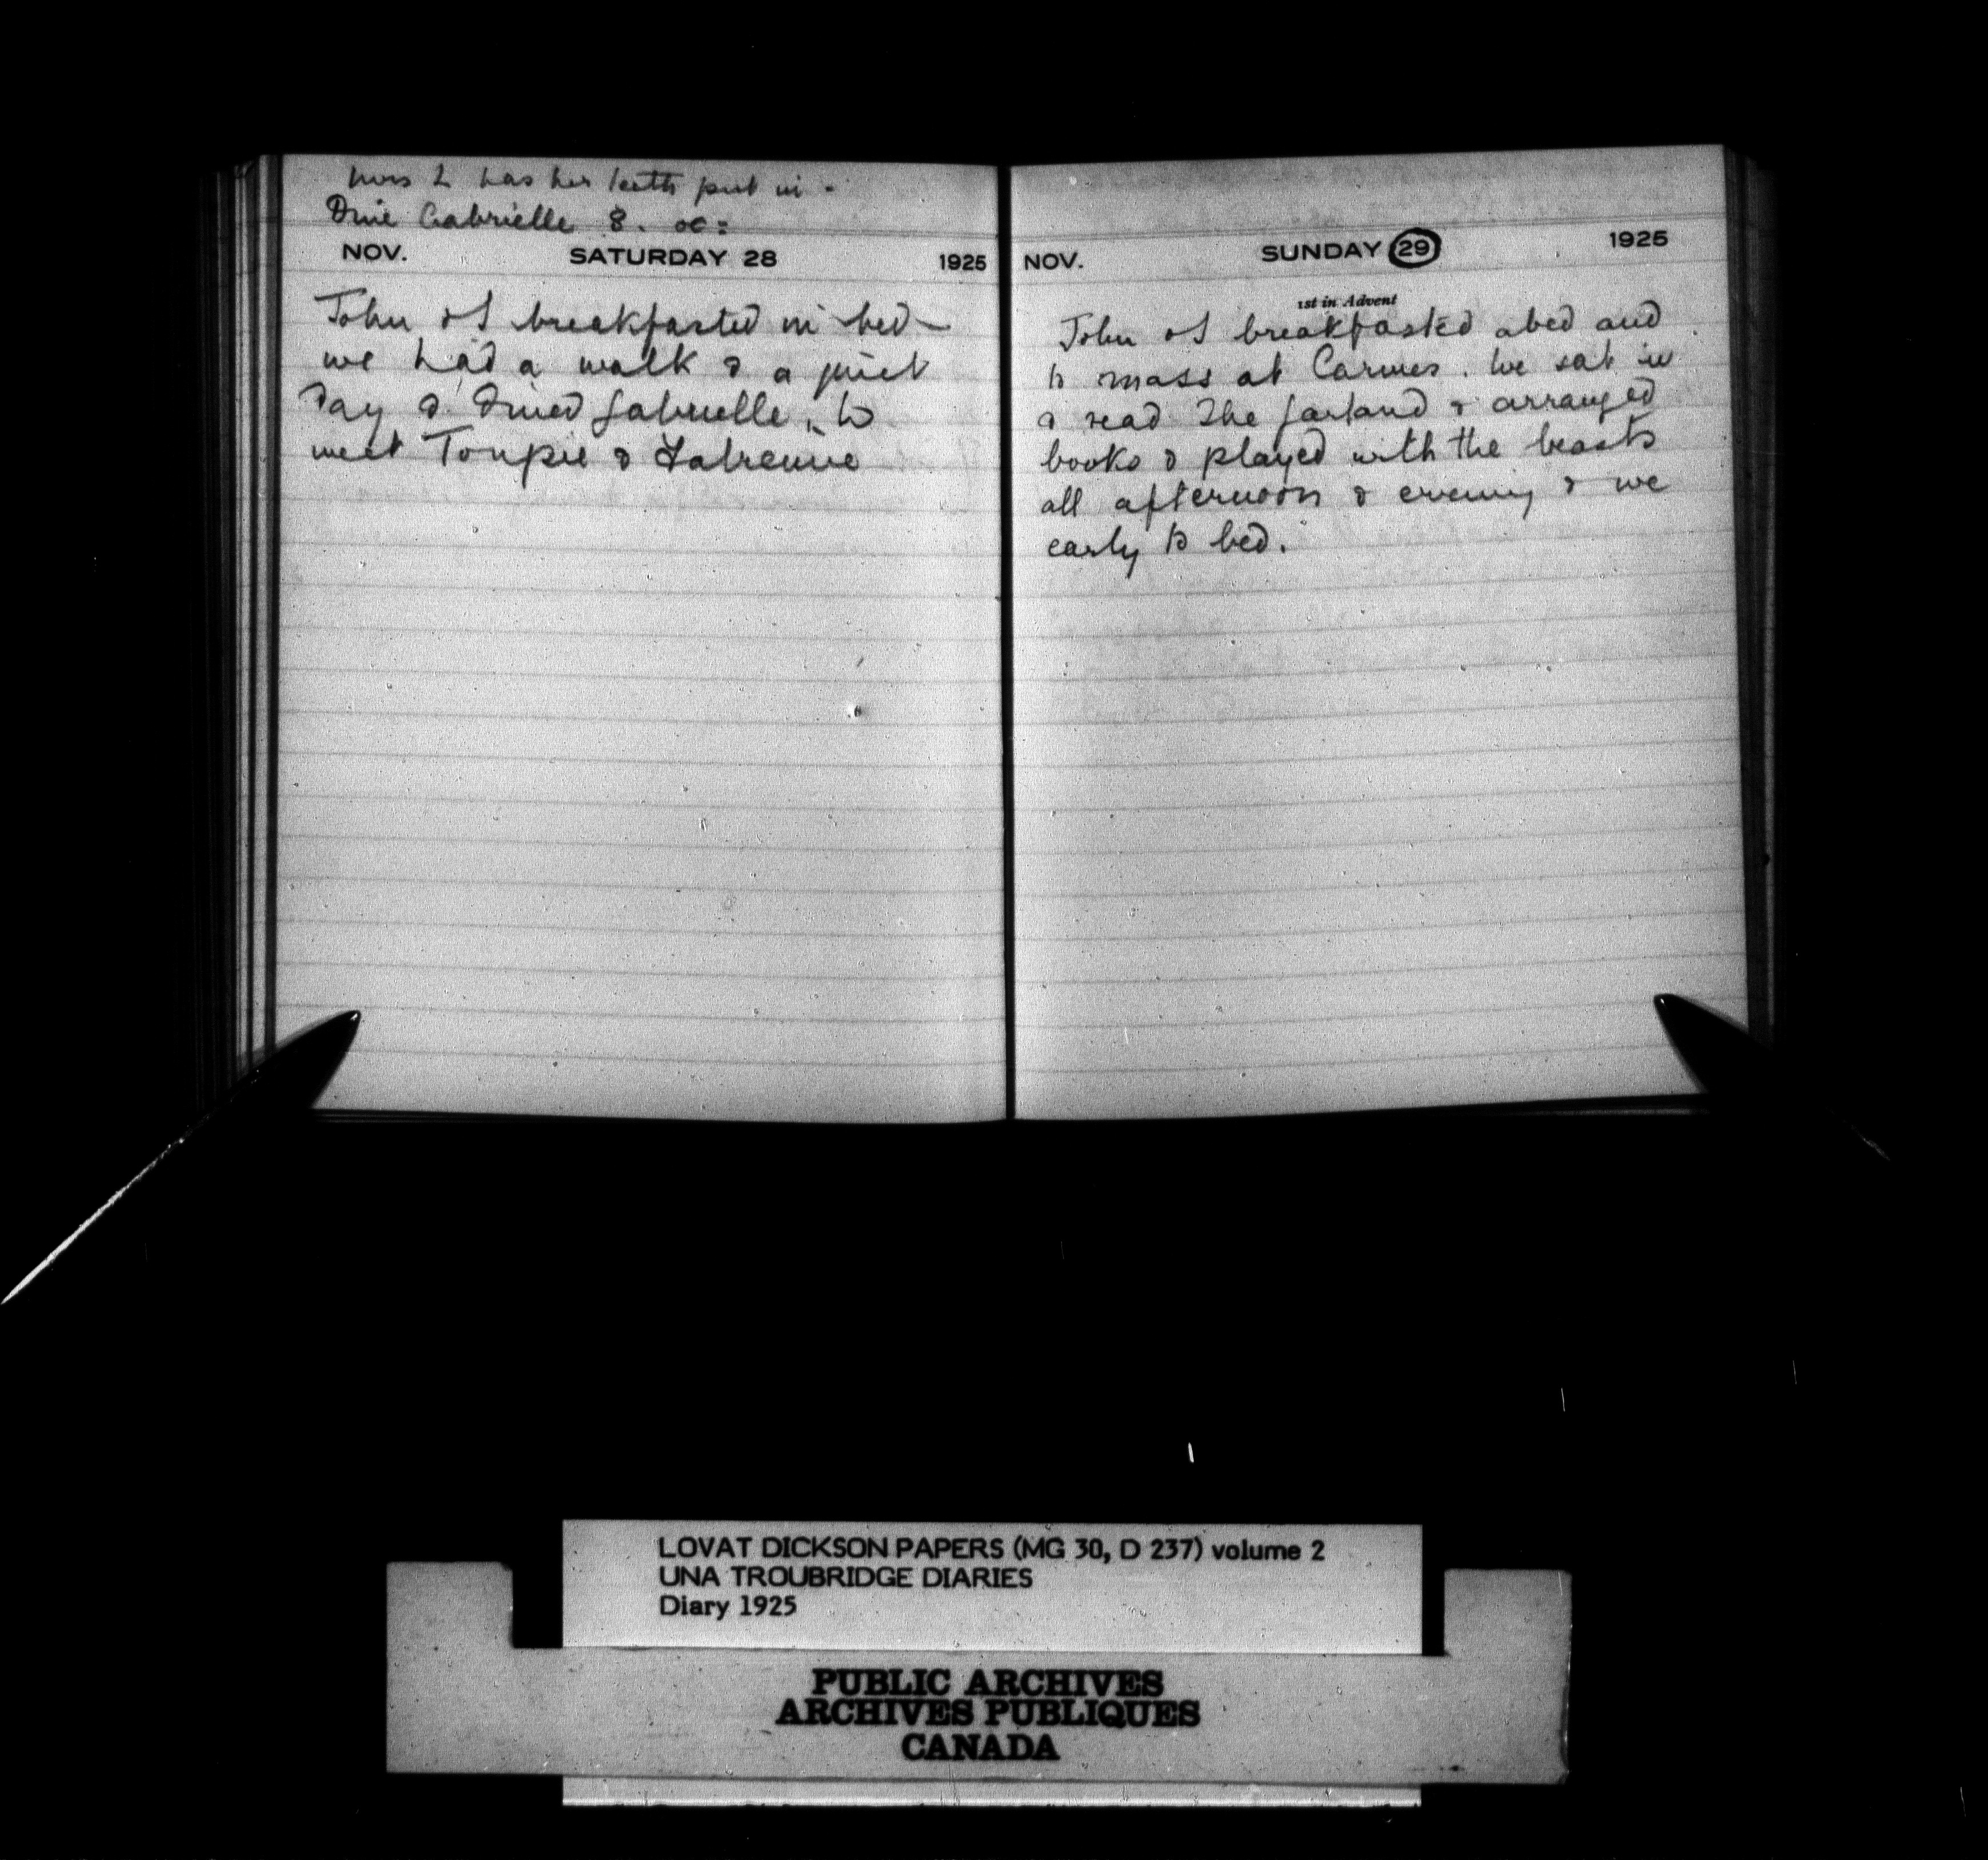 Mrs L has her teeth put in -
Dine Gabrielle 8. oc:
NOV. SATURDAY 28 1925
John & I breakfasted in bed -
we had a walk & a quiet
day & dined Gabrielle, to
meet Toupie & Fabienne
NOV. SUNDAY 29 1925
1st in Advent
John & I breakfasted abed and
to mass at Carmes. We sat in
& read The Garland & arranged
books & played with the beasts
all afternoon & evening & we
early to bed.
LOVAT DICKSON PAPERS (MG 30, D 237) volume 2
UNA TROUBRIDGE DIARIES
Diary 1925
PUBLIC ARCHIVES
ARCHIVES PUBLIQUES
CANADA